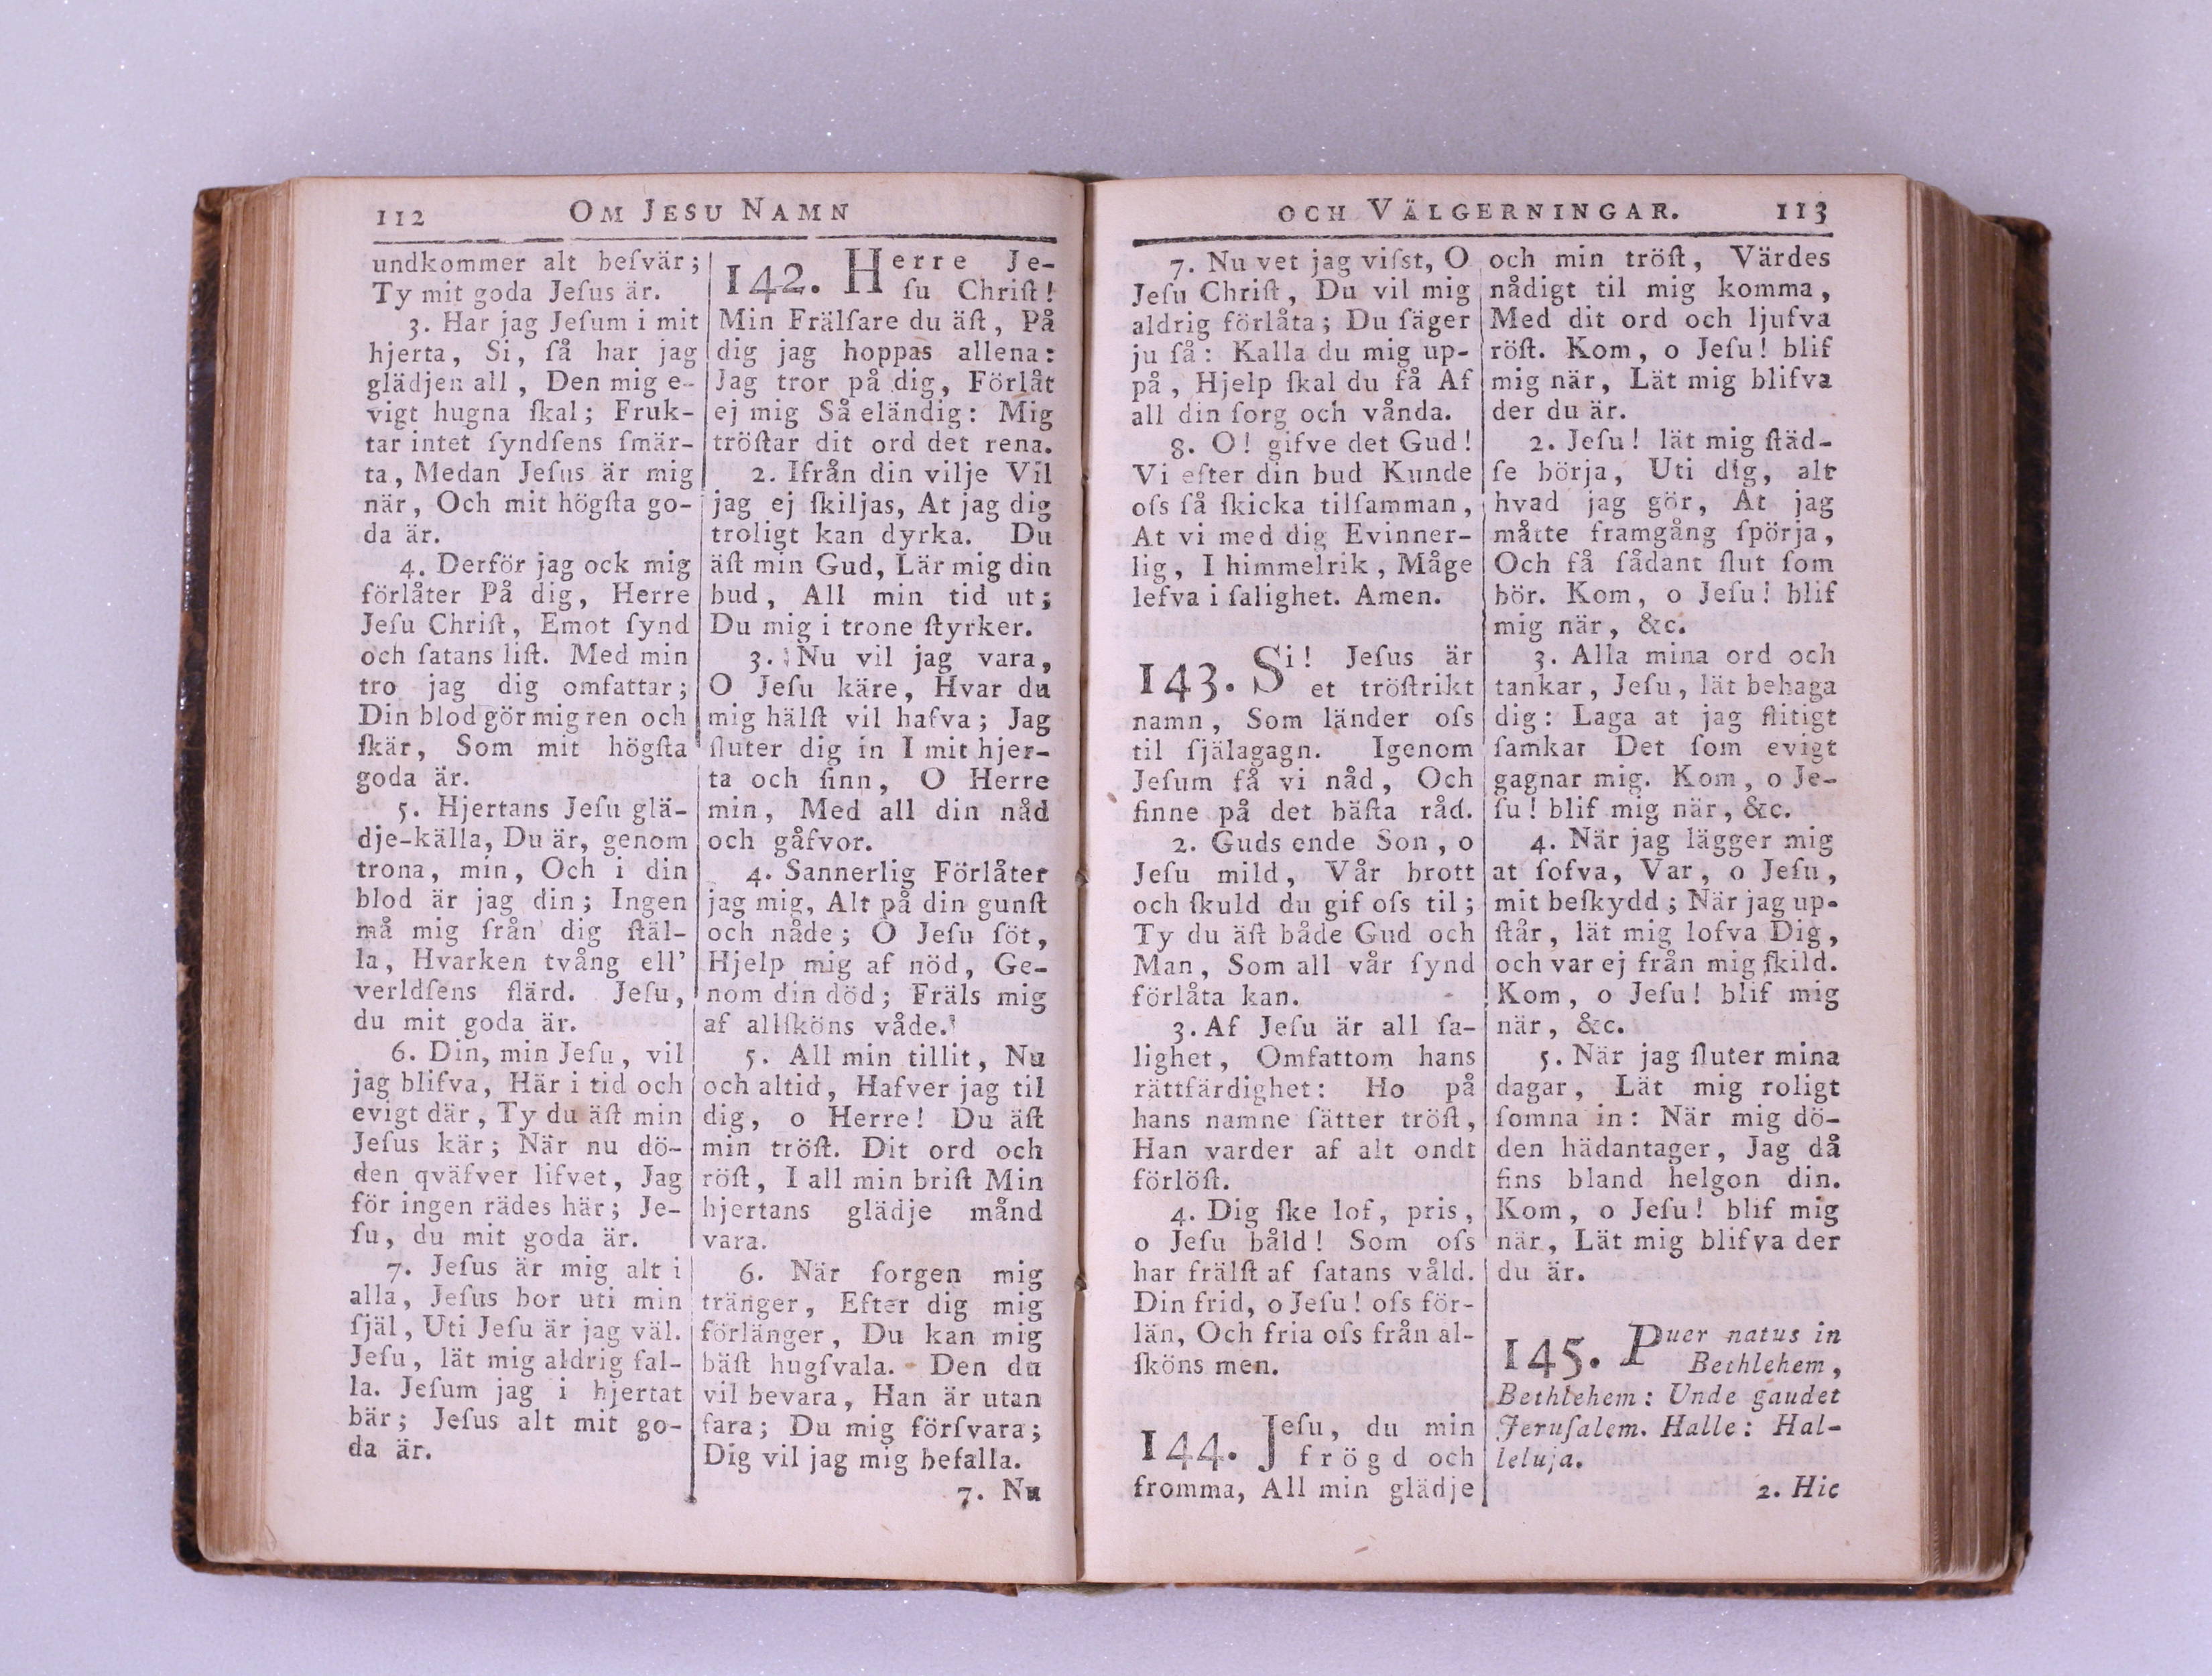 112 OM JESU NAMN
undkommer alt beſvär;
Ty mit goda Jeſus är.
3. Har jag Jeſum i mit
hjerta, Si, ſå har jag
glädjen all, Den mig e-
vigt hugna ſkal; Fruk-
tar intet ſyndſens ſmär-
ta, Medan Jeſus är mig
när, Och mit högſta go-
da är.
4. Derför jag ock mig
förlåter På dig, Herre
Jeſu Chriſt, Emot ſynd
och ſatans liſt. Med min
tro jag dig omfattar;
Din blod gör mig ren och
ſkär, Som mit högſta
goda är.
5. Hjertans Jeſu glä-
dje-källa, Du är, genom
trona, min, Och i din
blod är jag din; Ingen
må mig från dig ſtäl-
la, Hvarken tvång ell'
verldſens flärd. Jeſu,
du mit goda är.
6. Din, min Jeſu, vil
jag blifva, Här i tid och
evigt där, Ty du äſt min
Jeſus kär; När nu dö-
den qväfver lifvet, Jag
för ingen rädes här; Je-
ſu, du mit goda är.
7. Jeſus är mig alt i
alla, Jeſus bor uti min
ſjäl, Uti Jeſu är jag väl.
Jeſu, lät mig aldrig fal-
la. Jeſum jag i hjertat
bär; Jeſus alt mit go-
da är.
142. Herre Je-
ſu Chriſt!
Min Frälſare du äſt, På
dig jag hoppas allena:
Jag tror på dig, Förlåt
ej mig Så eländig: Mig
tröſtar dit ord det rena.
2. Ifrån din vilje Vil
jag ej ſkiljas, At jag dig
troligt kan dyrka. Du
äſt min Gud, Lär mig din
bud, All min tid ut;
Du mig i trone ſtyrker.
3. Nu vil jag vara,
O Jeſu käre, Hvar du
mig hälſt vil hafva; Jag
ſluter dig in I mit hjer-
ta och ſinn, O Herre
min, Med all din nåd
och gåfvor.
4. Sannerlig Förlåter
jag mig, Alt på din gunſt
och nåde; O Jeſu ſöt,
Hjelp mig af nöd, Ge-
nom din död; Fräls mig
af allſköns våde.
5. All min tillit, Nu
och altid, Hafver jag til
dig, o Herre! Du äſt
min tröſt. Dit ord och
röſt, I all min briſt Min
hjertans glädje månd
vara.
6. När ſorgen mig
tränger, Efter dig mig
förlänger, Du kan mig
bäſt hugſvala. Den du
vil bevara, Han är utan
fara; Du mig förſvara;
Dig vil jag mig befalla.
7. Nu
OCH VÄLGERNINGAR. 113
7. Nu vet jag viſst, O
Jeſu Chriſt, Du vil mig
aldrig förlåta; Du ſäger
ju ſå: Kalla du mig up-
på, Hjelp ſkal du få Af
all din ſorg och vånda.
8. O! gifve det Gud!
Vi efter din bud Kunde
oſs ſå ſkicka tilſamman,
At vi med dig Evinner-
lig, I himmelrik, Måge
lefva i ſalighet. Amen.
143. Si! Jeſus är
et tröſtrikt
namn, Som länder oſs
til ſjälagagn. Igenom
Jeſum få vi nåd, Och
finne på det bäſta råd.
2. Guds ende Son, o
Jeſu mild, Vår brott
och ſkuld du gif oſs til;
Ty du äſt både Gud och
Man, Som all vår ſynd
förlåta kan.
3. Af Jeſu är all ſa-
lighet, Omfattom hans
rättfärdighet: Ho på
hans namne ſätter tröſt,
Han varder af alt ondt
förlöſt.
4. Dig ſke lof, pris,
o Jeſu båld! Som oſs
har frälſt af ſatans våld.
Din frid, o Jeſu! oſs för-
län, Och fria oſs från al-
ſköns men.
144. Jeſu, du min
frögd och
fromma, All min glädje
och min tröſt, Värdes
nådigt til mig komma,
Med dit ord och ljufva
röſt. Kom, o Jeſu! blif
mig när, Lät mig blifva
der du är.
2. Jeſu! lät mig ſtäd-
ſe börja, Uti dig, alt
hvad jag gör, At jag
måtte framgång ſpörja,
Och få ſådant ſlut ſom
bör. Kom, o Jeſu! blif
mig när, &c.
3. Alla mina ord och
tankar, Jeſu, lät behaga
dig: Laga at jag flitigt
ſamkar Det ſom evigt
gagnar mig. Kom, o Je-
ſu! blif mig när, &c.
4. När jag lägger mig
at ſofva, Var, o Jeſu,
mit beſkydd; När jag up-
ſtår, lät mig lofva Dig,
och var ej från mig ſkild.
Kom, o Jeſu! blif mig
när, &c.
5. När jag ſluter mina
dagar, Lät mig roligt
ſomna in: När mig dö-
den hädantager, Jag då
fins bland helgon din.
Kom, o Jeſu! blif mig
när, Lät mig blifva der
du är.
145. Puer natus in
Bethlehem,
Bethlehem: Unde gaudet
Jeruſalem. Halle: Hal-
leluja.
2. Hic